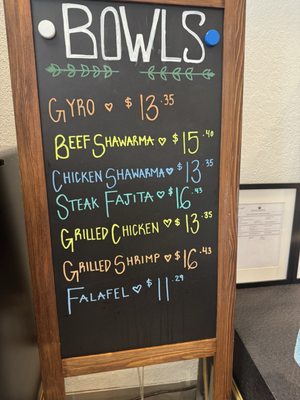 BOWLS
GYRO ♡ $13.35
BEEF SHAWARMA ♡ $15.40
CHICKEN SHAWARMA ♡ $13.35
STEAK FAJITA ♡ $16.43
GRILLED CHICKEN ♡ $13.35
GRILLED SHRIMP ♡ $16.43
FALAFEL ♡ $11.29